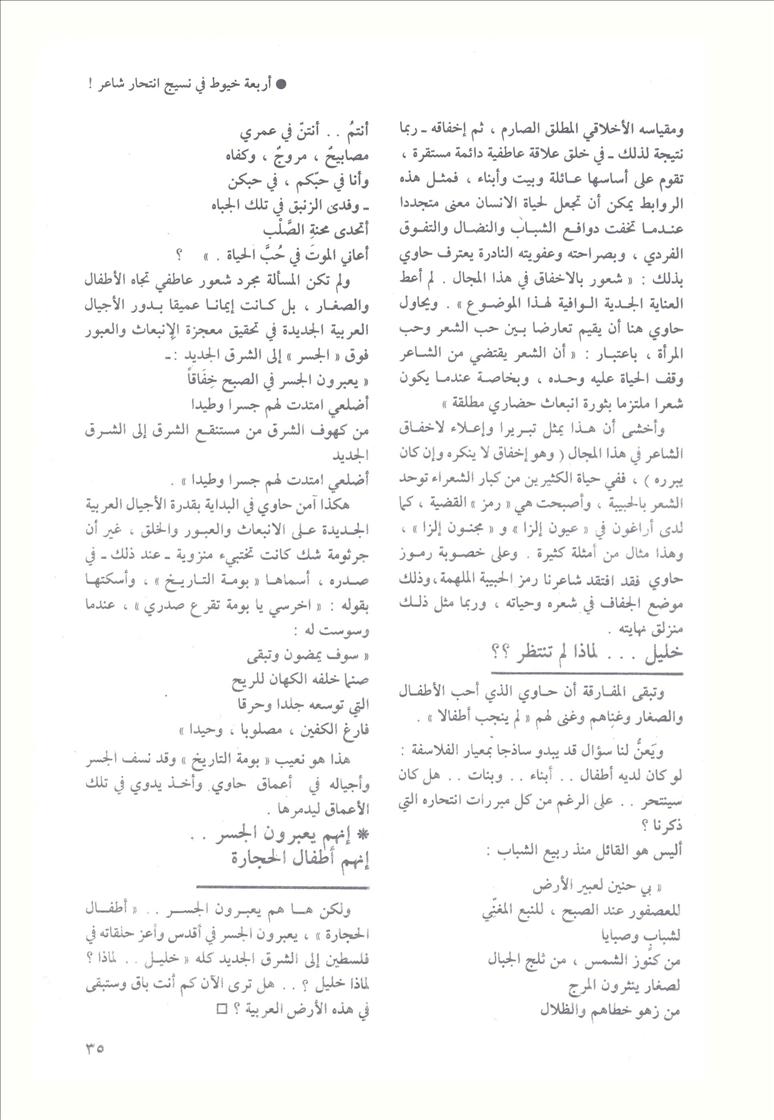 ● أربعة خيوط في نسيج انتحار شاعر !
ومقياسه الأخلاقي المطلق الصارم ، ثم إخفاقه ـ ربما
نتيجة لذلك ـ في خلق علاقة عاطفية دائمة مستقرة ،
تقوم على أساسها عائلة وبيت وأبناء ، فمثل هذه
الروابط يمكن أن تجعل لحياة الانسان معنى متجددا
عندما تخفت دوافع الشباب والنضال والتفوق
الفردي ، وبصراحته وعفويته النادرة يعترف حاوي
بذلك : « شعور بالاخفاق في هذا المجال . لم أعط
العناية الجدية الوافية لهذا الموضوع » . ويحاول
حاوي هنا أن يقيم تعارضا بين حب الشعر وحب
المرأة ، باعتبار : « أن الشعر يقتضي من الشاعر
وقف الحياة عليه وحده ، وبخاصة عندما يكون
شعرا ملتزما بثورة انبعاث حضاري مطلقة »
وأخشى أن هذا يمثل تبريرا وإعلاء لاخفاق
الشاعر في هذا المجال ( وهو إخفاق لا ينكره وإن كان
يبرره ) ، ففي حياة الكثيرين من كبار الشعراء توحد
الشعر بالحبيبة ، وأصبحت هي « رمز » القضية ، كما
لدى أراغون في « عيون إلزا » و « مجنون إلزا » ،
وهذا مثال من أمثلة كثيرة . وعلى خصوبة رموز
حاوي فقد افتقد شاعرنا رمز الحبيبة الملهمة،وذلك
موضع الجفاف في شعره وحياته ، وربما مثل ذلك
منزلق نهايته .
خليل ... لماذا لم تنتظر ؟؟
وتبقى المفارقة أن حاوي الذي أحب الأطفال
والصغار وغناهم وغنى لهم « لم ينجب أطفالا » .
ويَعنُّ لنا سؤال قد يبدو ساذجا بمعيار الفلاسفة :
لو كان لديه أطفال .. أبناء .. وبنات .. هل كان
سينتحر .. على الرغم من كل مبررات انتحاره التي
ذكرنا ؟
أليس هو القائل منذ ربيع الشباب :
« بي حنين لعبير الأرض
للعصفور عند الصبح ، للنبع المغنّي
لشبابٍ وصبايا
من كنوز الشمس ، من ثلج الجبال
لصغار ينثرون المرج
من زهو خطاهم والظلال
أنتمُ .. أنتنّ في عمري
مصابيحٌ ، مروجٌ ، وكفاه
وأنا في حبّكم ، في حبكن
ـ وفدى الزنبق في تلك الجباه
أتحدى محنةِ الصَّلْب
أعاني الموتَ في حُبِّ الحياة . » ؟
ولم تكن المسألة مجرد شعور عاطفي تجاه الأطفال
والصغار ، بل كانت إيمانا عميقا بدور الأجيال
العربية الجديدة في تحقيق معجزة الإنبعاث والعبور
فوق « الجسر » إلى الشرق الجديد :ـ
« يعبرون الجسر في الصبح خِفَافاً
أضلعي امتدت لهم جسرا وطيدا
من كهوف الشرق من مستنقع الشرق إلى الشرق
الجديد
أضلعي امتدت لهم جسرا وطيدا » .
هكذا آمن حاوي في البداية بقدرة الأجيال العربية
الجديدة على الانبعاث والعبور والخلق ، غير أن
جرثومة شك كانت تختبيء منزوية ـ عند ذلك ـ في
صدره ، أسماها « بومة التاريخ » ، وأسكتها
بقوله : « اخرسي يا بومة تقرع صدري » ، عندما
وسوست له :
« سوف يمضون وتبقى
صنما خلفه الكهان للريح
التي توسعه جلدا وحرقا
فارغ الكفين ، مصلوبا ، وحيدا »
هذا هو نعيب « بومة التاريخ » وقد نسف الجسر
وأجياله في أعماق حاوي وأخذ يدوي في تلك
الأعماق ليدمرها .
* إنهم يعبرون الجسر ..
إنهم أطفال الحجارة
ولكن ها هم يعبرون الجسر .. « أطفال
الحجارة » ، يعبرون الجسر في أقدس وأعز حلقاته في
فلسطين إلى الشرق الجديد كله « خليل .. لماذا ؟
لماذا خليل ؟ .. هل ترى الآن كم أنت باق وستبقى
في هذه الأرض العربية ؟ □
٣٥